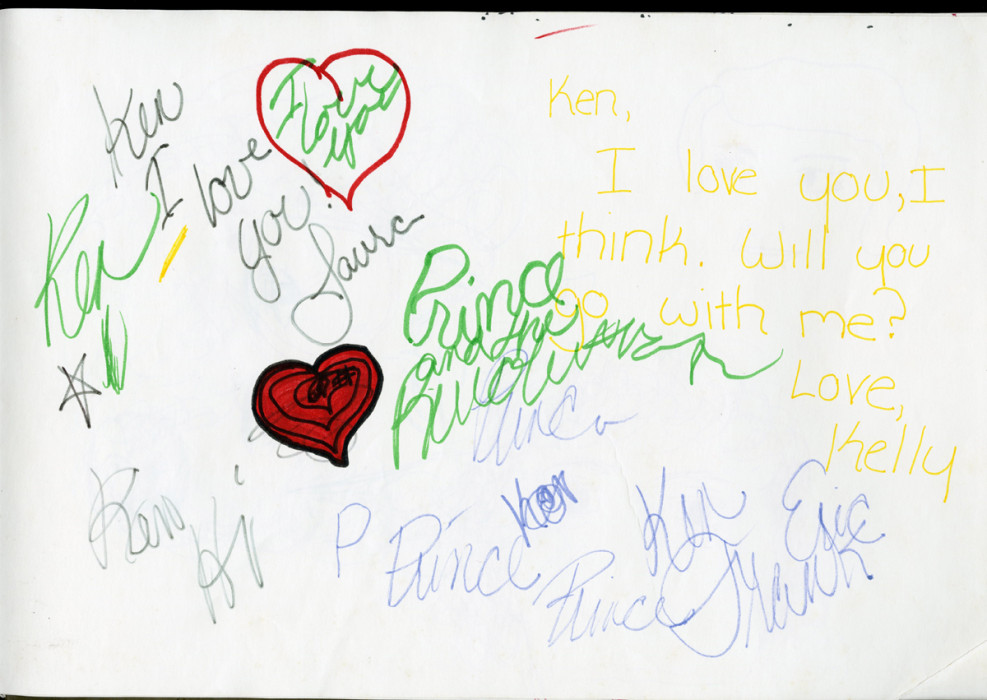 Ken
I love
you!
Laura
I
love
you
Ken,
I love you, I
think. Will you
go with me?
Love,
Kelly
Ken
Prince
and the
Revolution
Prince
Ken
P
Prince
Ken
Ken
Eric
Prince